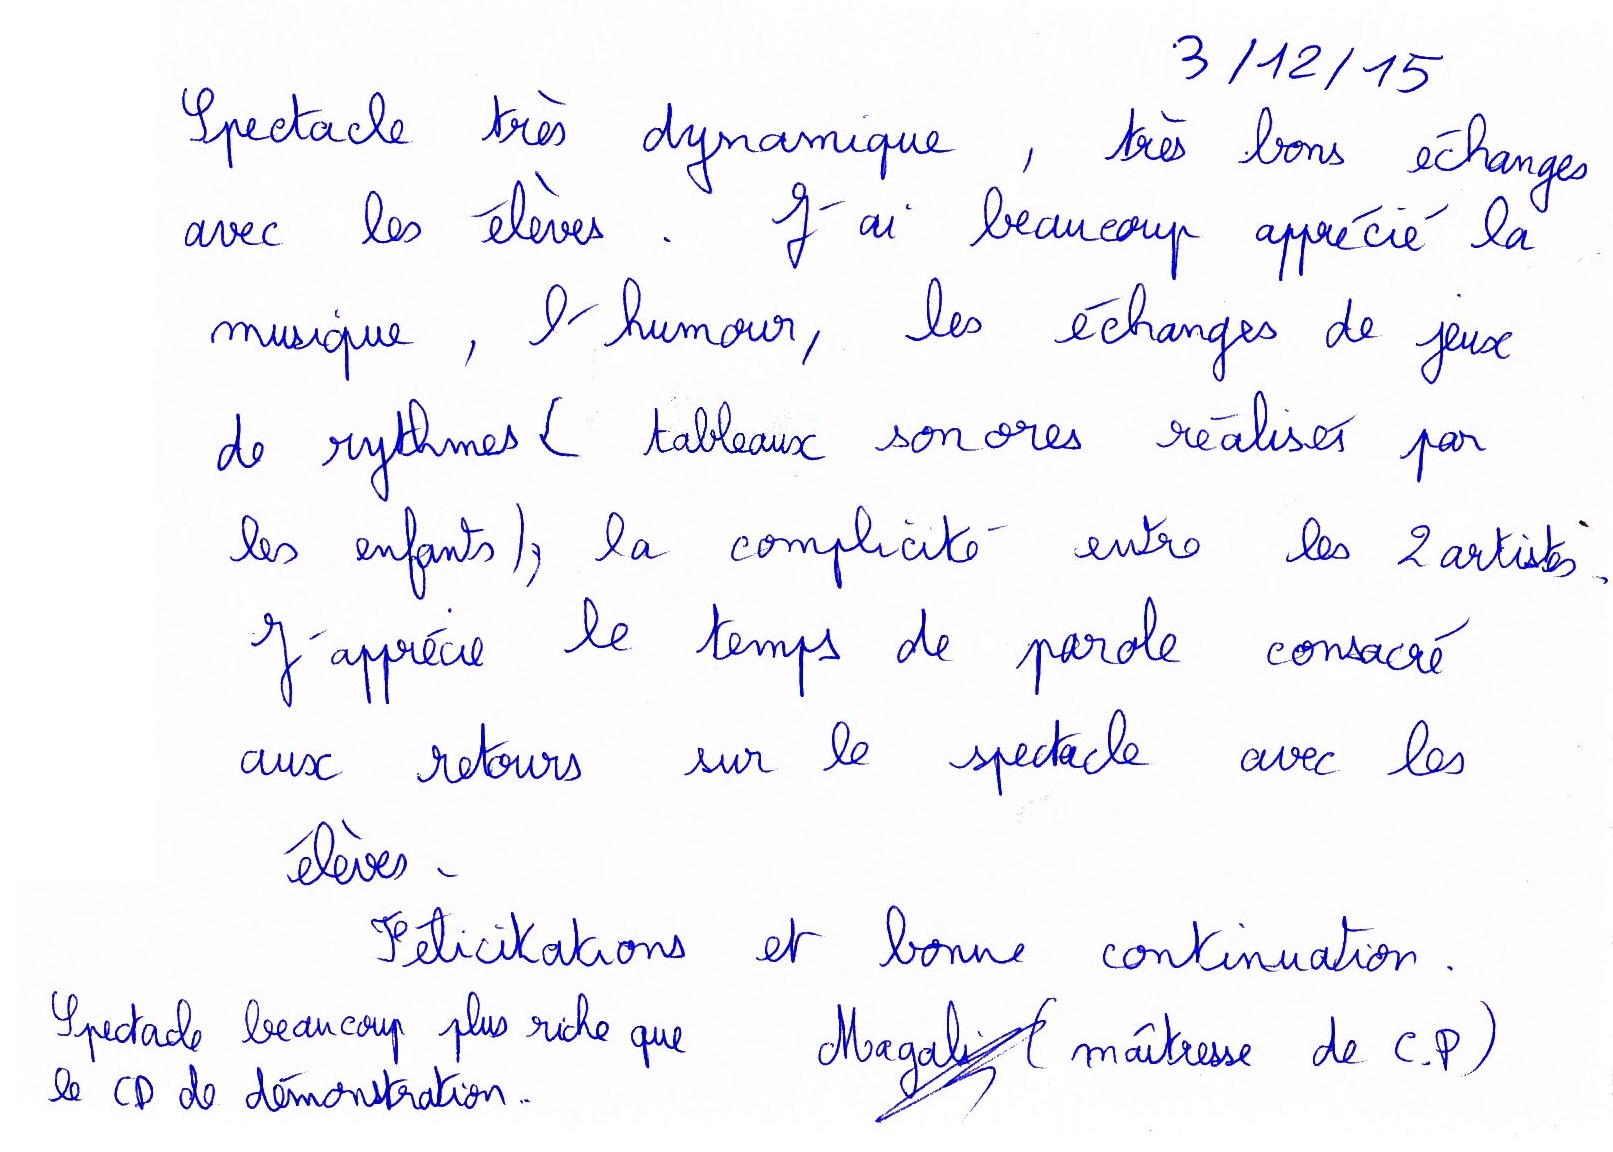 3/12/15
Spectacle très dynamique, très bons échanges
avec les élèves. J'ai beaucoup apprécié la
musique, l'humour, les échanges de jeux
de rythmes ( tableaux sonores réalisés par
les enfants), la complicité entre les 2 artistes.
J'apprécie le temps de parole consacré
aux retours sur le spectacle avec les
élèves.
Félicitations et bonne continuation.
Spectacle beaucoup plus riche que
le CD de démonstration..
Magali (maîtresse de C.P)